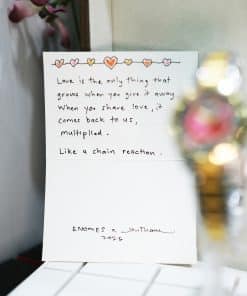 Love is the only thing that
grows when you give it away
When you share love, it
comes back to us,
multiplied.
Like a chain reaction.